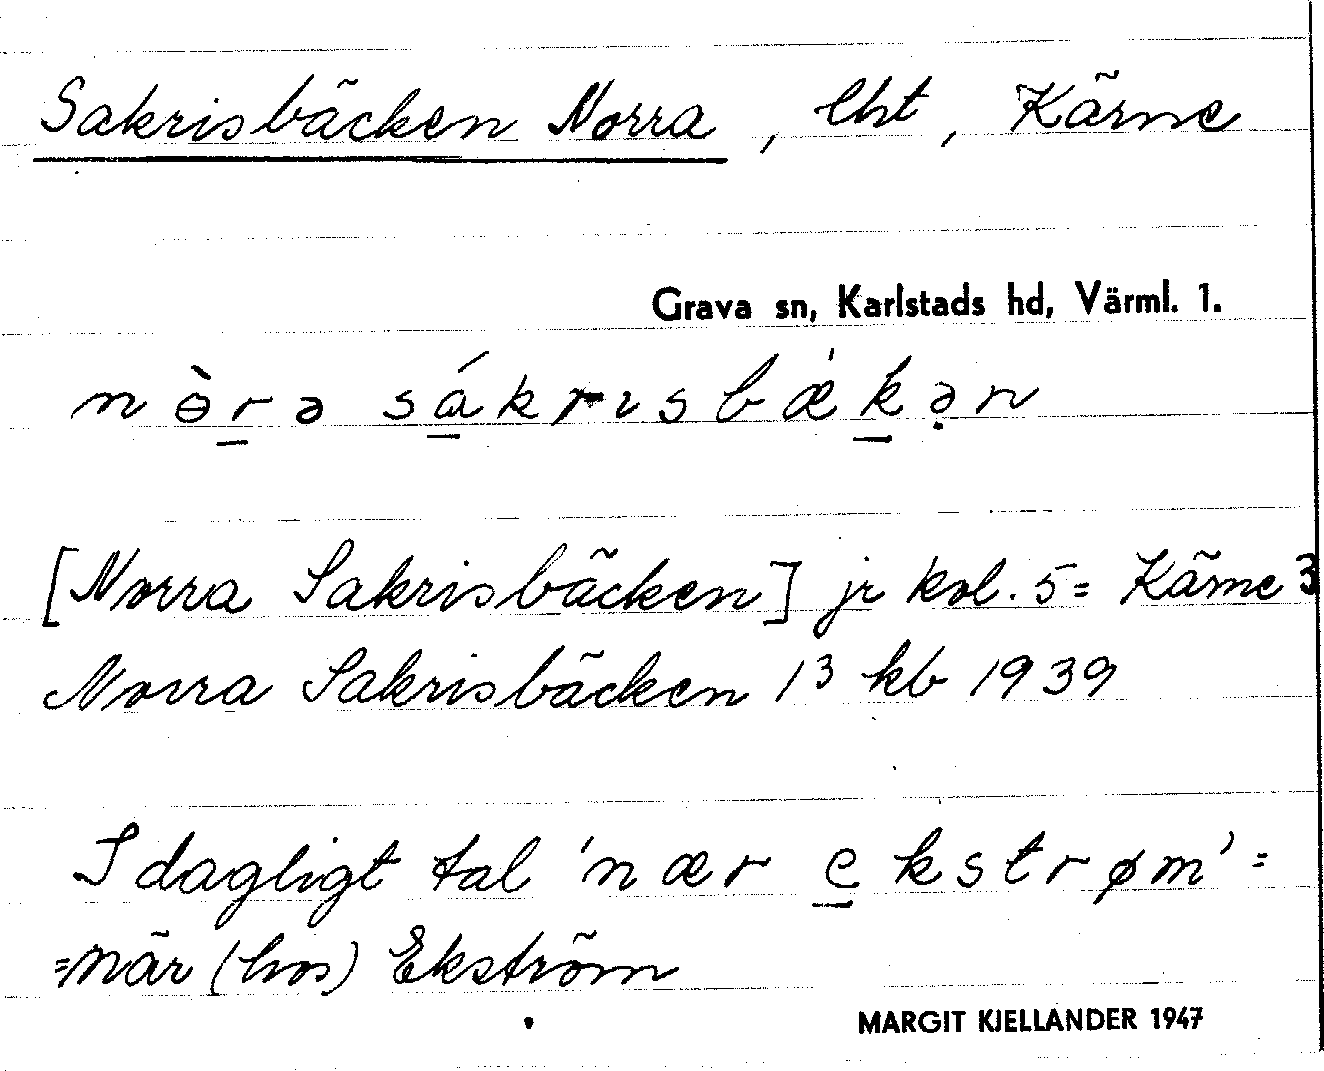 Sakrisbäcken Norra, lht, Kärne
Grava sn, Karlstads hd, Värml. 1.
nɵ̀r̲ə sá̲krɩsbæ̍k̲ə̣n
[Norra Sakrisbäcken] jr kol. 5 = Kärne 3
Norra Sakrisbäcken 1³ kb 1939
I dagligt tal 'nær e̲kstrøm' =
= när (hos) Ekström
MARGIT KJELLANDER 1947